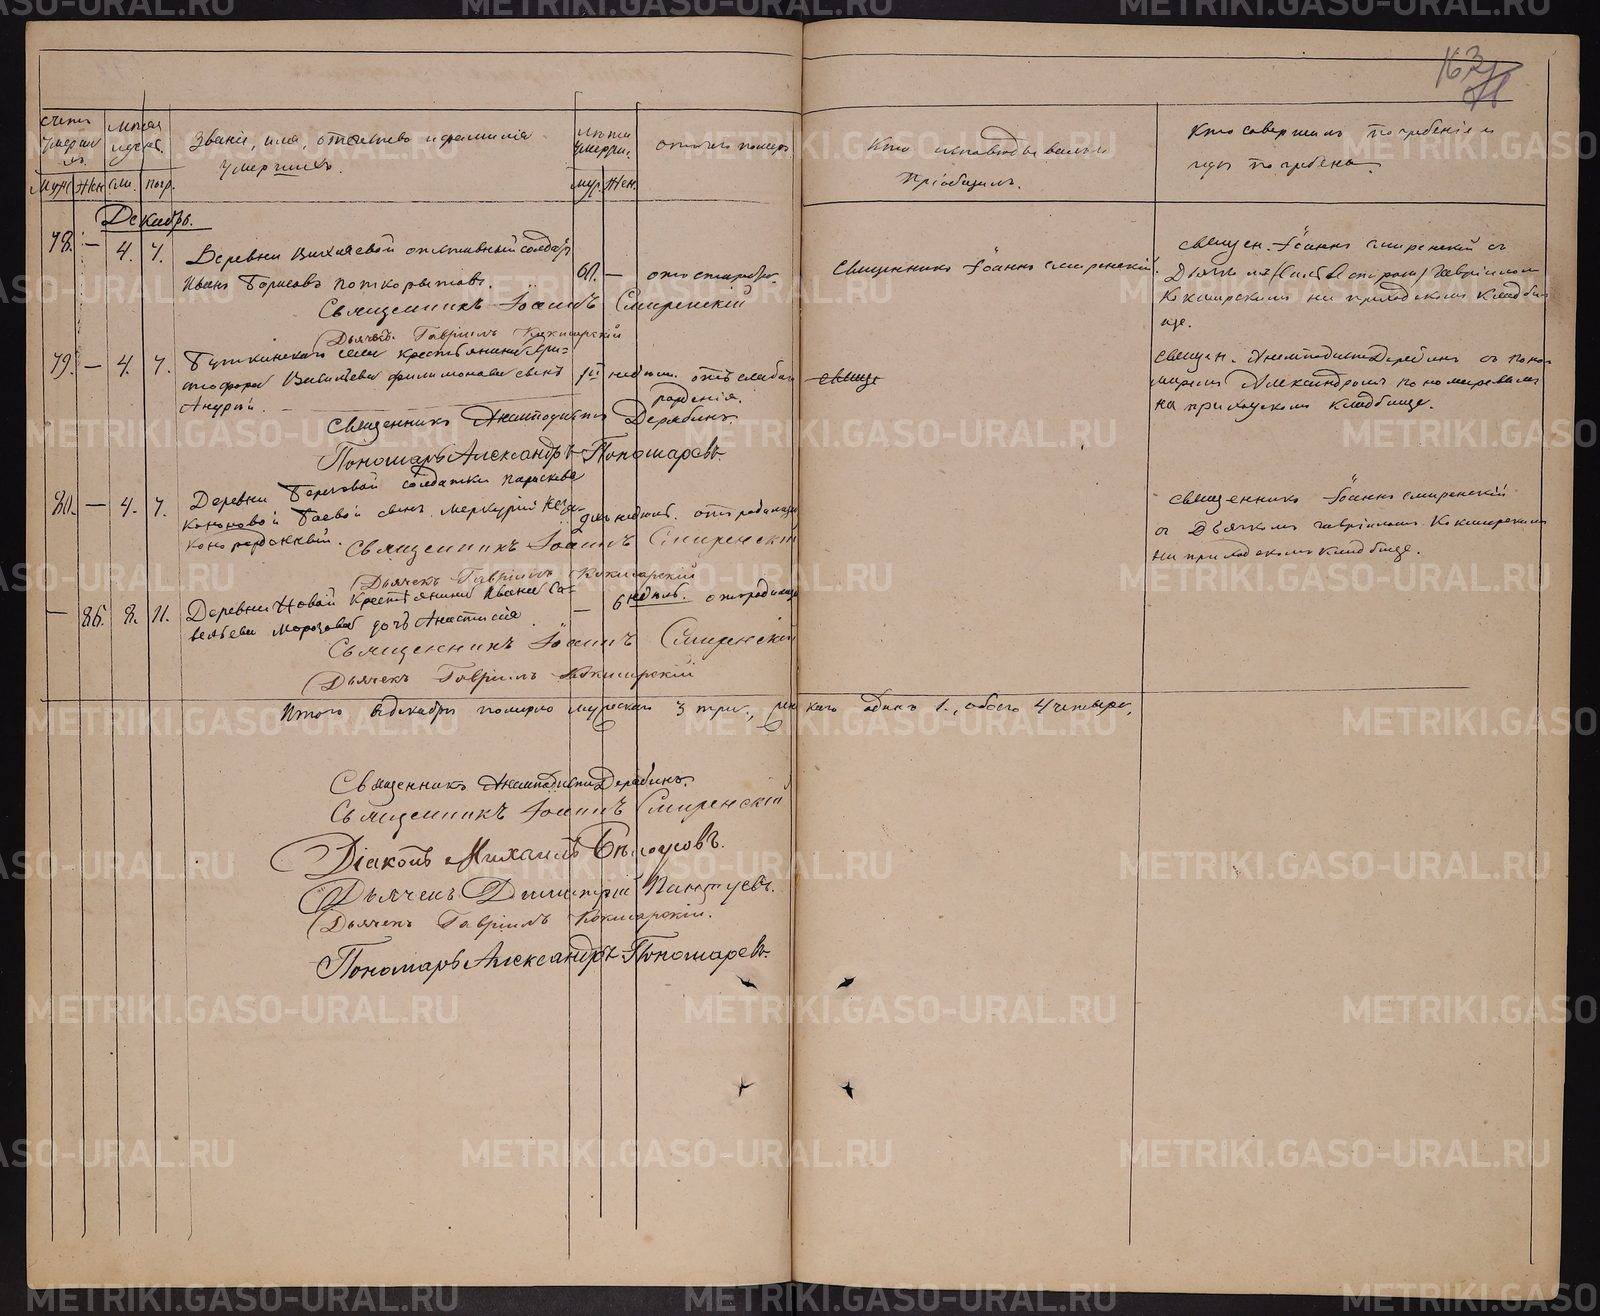 163
Счетъ умерших.
Мѣсяц и день.
Званіе, имя, отчество и фамилія
умершихъ.
Лѣта умерш.
отъ чего померъ
Кто исповѣдывалъ и
пріобщалъ.
Кто совершалъ погребеніе и
гдѣ погребены.
Муж. Жен. см. погр.
Муж. Жен.
Декабрь.
78. — 4. 7. Деревни отставный солдатъ
Иванъ Борисовъ
60. — отъ старости.
Священникъ Іоаннъ Смиренскій.
Священ. Іоаннъ Смиренскій съ
Дьячкомъ Гавріиломъ
Кокшарскимъ на приходскомъ кладби-
ще.
Священникъ Іоаннъ Смиренскій
Дьячекъ Гавріилъ Кокшарскій
79. — 4. 7. Буткинскаго села крестьянина Хри-
стофора Васильева Филимонова сынъ
Андрей.
недѣли. отъ слабаго
рожденія.
свяще
Священ. Анемподистъ Дерябинъ съ поно-
маремъ Александромъ Пономаревымъ
на приходскомъ кладбище.
Священникъ Анемподистъ Дерябинъ.
Пономарь Александръ Пономаревъ.
80. — 4. 7. Деревни Береговой солдатки Параскевы
Кононовой Боевой сынъ Меркурій неза-
конорожденный.
недѣль. отъ родимца
Священникъ Іоаннъ Смиренскій
съ Дьячкомъ Гавріиломъ Кокшарскимъ
на приходскомъ кладбище.
Священникъ Іоаннъ Смиренскій
Дьячекъ Гавріилъ Кокшарскій
— 86. 8. 11. Деревни Новой крестьянина Ивана Са-
вельева Морозова дочь Анастасія
— 6 недѣль. отъ родимца
Священникъ Іоаннъ Смиренскій
Дьячекъ Гавріилъ Кокшарскій
Итого въ декабрѣ померло мужескаго 3 три, женскаго одинъ 1., обоего 4 четверо.
Священникъ Анемподистъ Дерябинъ.
Священникъ Іоаннъ Смиренскій
Діаконъ Михаилъ Бѣлоусовъ.
Дьячекъ Димитрій Пантуевъ.
Дьячекъ Гавріилъ Кокшарскій.
Пономарь Александръ Пономаревъ.
METRIKI.GASO-URAL.RU